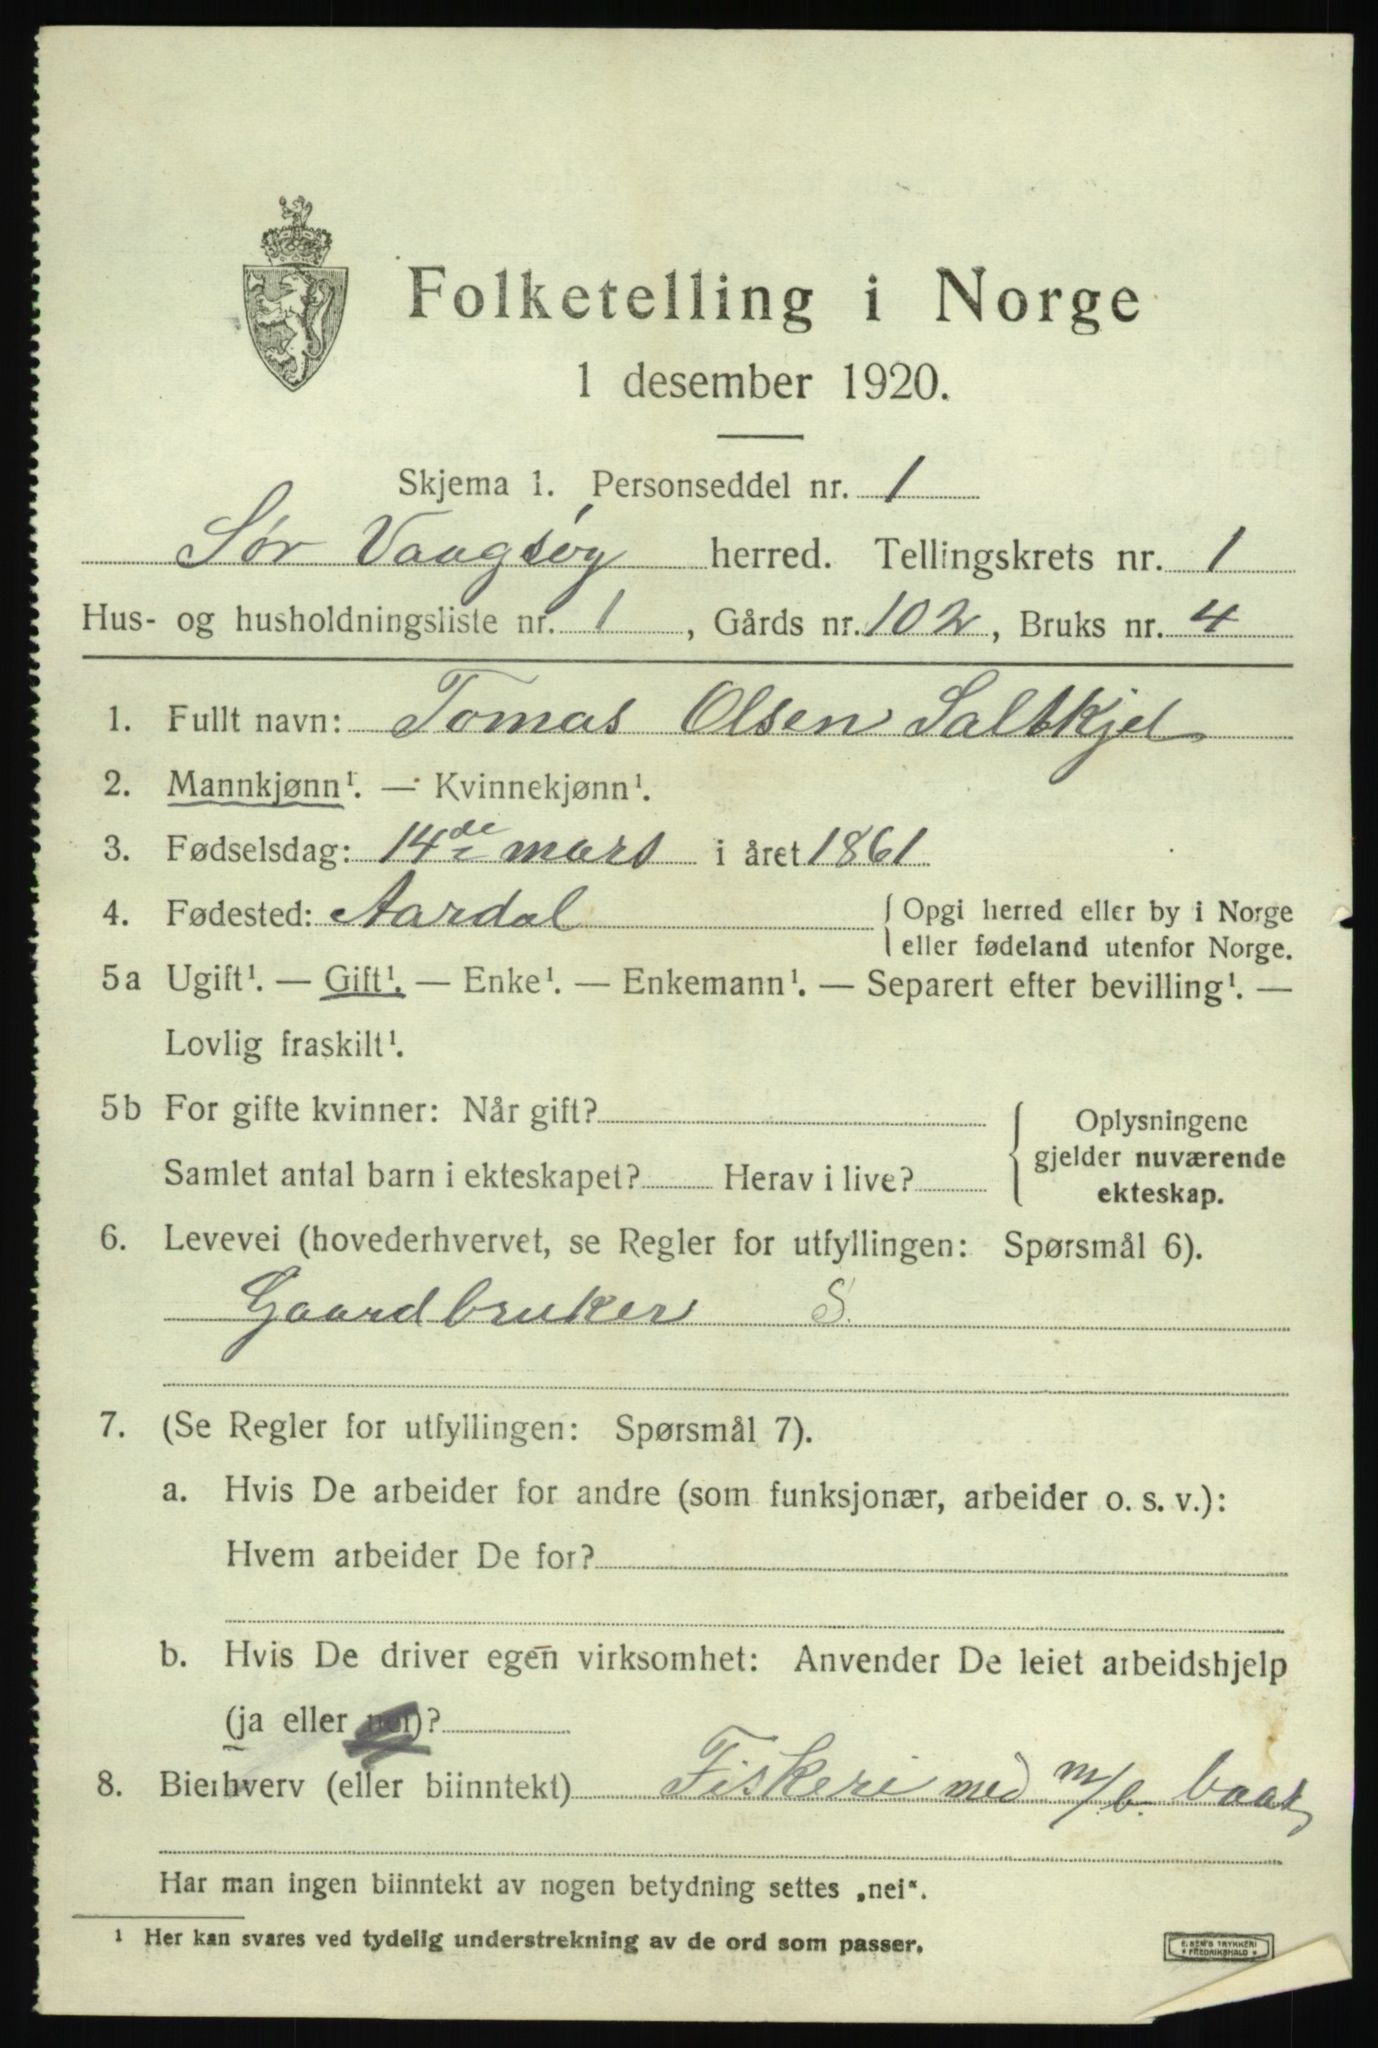 Folketelling i Norge
1 desember 1920.
Skjema 1. Personseddel nr. 1
Sør Vaagsøy herred. Tellingskrets nr. 1
Hus- og husholdningsliste nr. 1, Gårds nr. 102, Bruks nr. 4
1. Fullt navn: Tomas Olsen Saltkjel
2. Mannkjønn¹. — Kvinnekjønn¹.
3. Fødselsdag: 14de mars i året 1861
4. Fødested: Aardal { Opgi herred eller by i Norge
eller fødeland utenfor Norge.
5a Ugift¹. — Gift¹. — Enke¹. — Enkemann¹. — Separert efter bevilling¹. —
Lovlig fraskilt¹.
5b For gifte kvinner: Når gift?
Samlet antal barn i ekteskapet? Herav i live?
Oplysningene
gjelder nuværende
ekteskap.
6. Levevei (hovederhvervet, se Regler for utfyllingen: Spørsmål 6).
Gaardbruker S.
7. (Se Regler for utfyllingen: Spørsmål 7).
a. Hvis De arbeider for andre (som funksjonær, arbeider o. s. v.):
Hvem arbeider De for?
b. Hvis De driver egen virksomhet: Anvender De leiet arbeidshjelp
(ja eller nei)?
8. Bierhverv (eller biinntekt) Fiskeri med m/b. baat
Har man ingen biinntekt av nogen betydning settes „nei“.
¹ Her kan svares ved tydelig understrekning av de ord som passer.
E. SEM'S TRYKKERI
* FREDRIKSHALD *